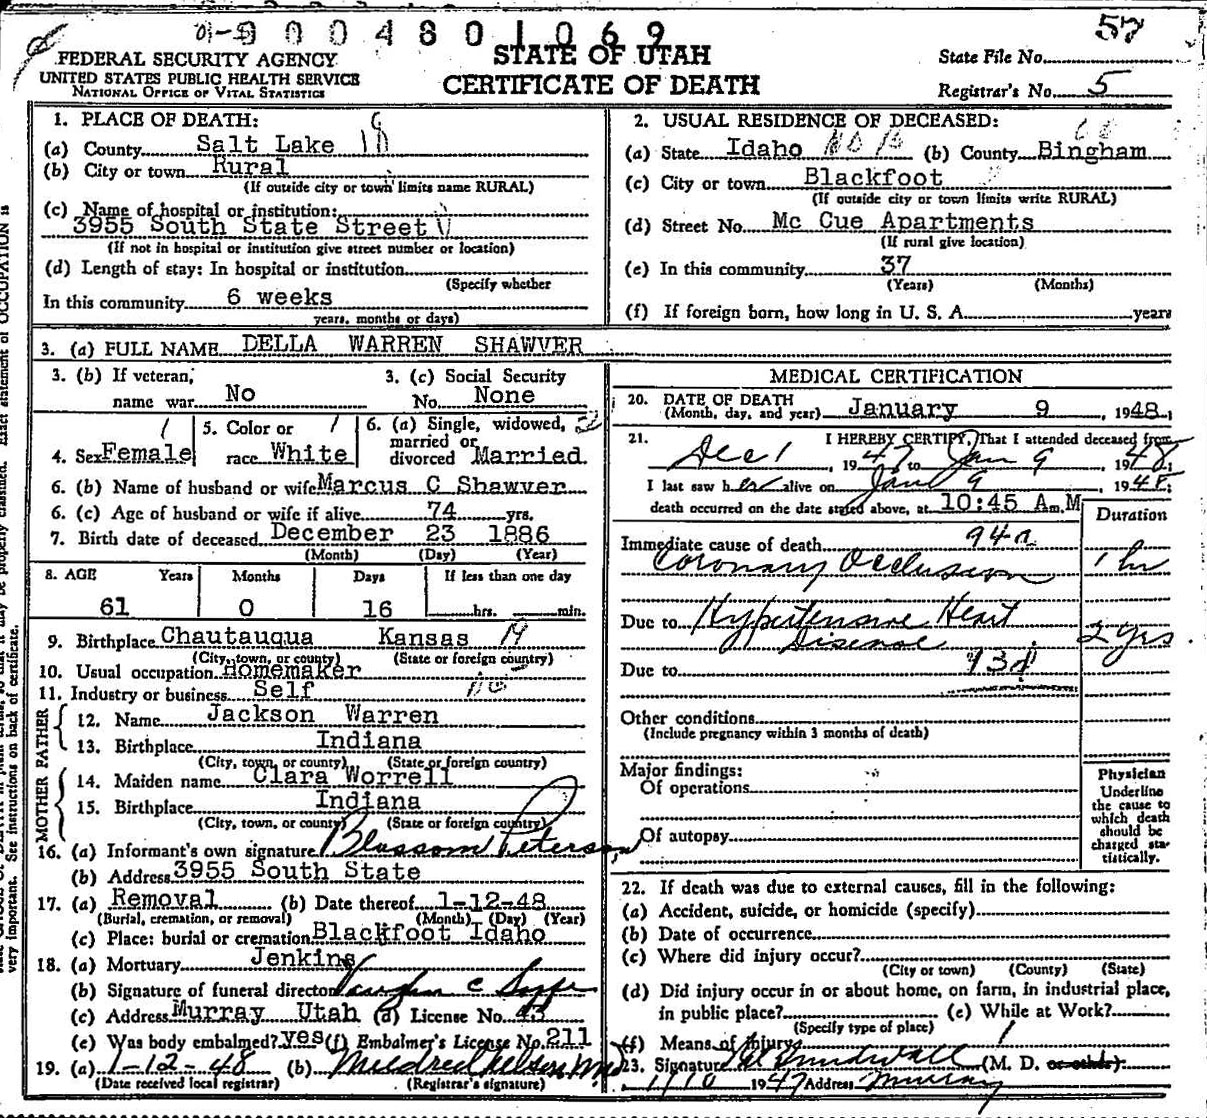 01-9 0 0 4 8 0 1 0 6 9
57
FEDERAL SECURITY AGENCY
UNITED STATES PUBLIC HEALTH SERVICE
NATIONAL OFFICE OF VITAL STATISTICS
STATE OF UTAH
CERTIFICATE OF DEATH
State File No.
Registrar's No. 5
1. PLACE OF DEATH:
(a) County Salt Lake
(b) City or town Rural
(If outside city or town limits name RURAL)
(c) Name of hospital or institution:
3955 South State Street
(If not in hospital or institution give street number or location)
(d) Length of stay: In hospital or institution
(Specify whether
In this community 6 weeks
years, months or days)
2. USUAL RESIDENCE OF DECEASED:
(a) State Idaho (b) County Bingham
(c) City or town Blackfoot
(If outside city or town limits write RURAL)
(d) Street No. Mc Cue Apartments
(If rural give location)
(e) In this community 37
(Years) (Months)
(f) If foreign born, how long in U. S. A. years
3. (a) FULL NAME DELLA WARREN SHAWVER
3. (b) If veteran, name war No
3. (c) Social Security No. None
4. Sex Female
5. Color or race White
6. (a) Single, widowed, married or divorced Married
6. (b) Name of husband or wife Marcus C Shawver
6. (c) Age of husband or wife if alive 74 yrs.
7. Birth date of deceased December 23 1886
(Month) (Day) (Year)
8. AGE Years Months Days If less than one day
61 0 16 hrs. min.
9. Birthplace Chautauqua Kansas
(City, town, or county) (State or foreign country)
10. Usual occupation Homemaker
11. Industry or business Self
FATHER
12. Name Jackson Warren
13. Birthplace Indiana
(City, town, or county) (State or foreign country)
MOTHER
14. Maiden name Clara Worrell
15. Birthplace Indiana
(City, town, or county) (State or foreign country)
16. (a) Informant's own signature Blossom Peterson
(b) Address 3955 South State
17. (a) Removal (b) Date thereof 1-12-48
(Burial, cremation, or removal) (Month) (Day) (Year)
(c) Place: burial or cremation Blackfoot Idaho
18. (a) Mortuary Jenkins
(b) Signature of funeral director Vaughn C
(c) Address Murray Utah (d) License No. 43
(e) Was body embalmed? yes (f) Embalmer's License No. 211
19. (a) 1-12-48 (b) Mildred Nelson M.D.
(Date received local registrar) (Registrar's signature)
MEDICAL CERTIFICATION
20. DATE OF DEATH
(Month, day, and year) January 9, 1948
21. I HEREBY CERTIFY, That I attended deceased from
Dec 1, 1947 to Jan 9 1948
I last saw her alive on Jan 9 1948
death occurred on the date stated above, at 10:45 A.M
Duration
Immediate cause of death 94a
Coronary Occlusion 1 hr
Due to Hypertensive Heart
Disease 2 yrs
Due to 93d
Other conditions
(Include pregnancy within 3 months of death)
Major findings:
Of operations
Of autopsy
Physician
Underline
the cause to
which death
should be
charged sta-
tistically.
22. If death was due to external causes, fill in the following:
(a) Accident, suicide, or homicide (specify)
(b) Date of occurrence
(c) Where did injury occur?
(City or town) (County) (State)
(d) Did injury occur in or about home, on farm, in industrial place,
in public place? (e) While at Work?
(Specify type of place)
(f) Means of injury
23. Signature (M. D. or other)
1/10 1947 Address Murray
very important. See instructions on back of certificate.
may be properly classified. Exact statement of OCCUPATION is